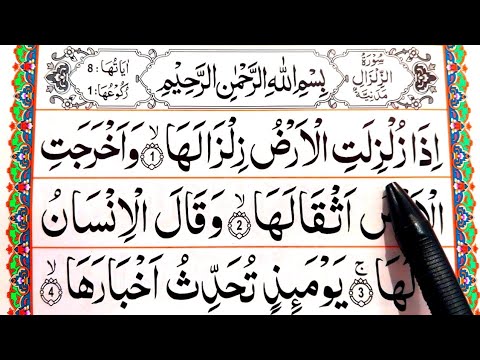 سُوْرَةُ
الزِّلْزَالِ
مَدَنِيَّةٌ
بِسْمِ اللهِ الرَّحْمٰنِ الرَّحِيْمِ
اٰيَاتُهَا: 8
رُكُوْعُهَا: 1
اِذَا زُلْزِلَتِ الْاَرْضُ زِلْزَالَهَا ۙ﴿1﴾ وَاَخْرَجَتِ
الْاَرْضُ اَثْقَالَهَا ۙ﴿2﴾ وَقَالَ الْاِنْسَانُ
لَهَا ۚ﴿3﴾ يَوْمَئِذٍ تُحَدِّثُ اَخْبَارَهَا ۙ﴿4﴾